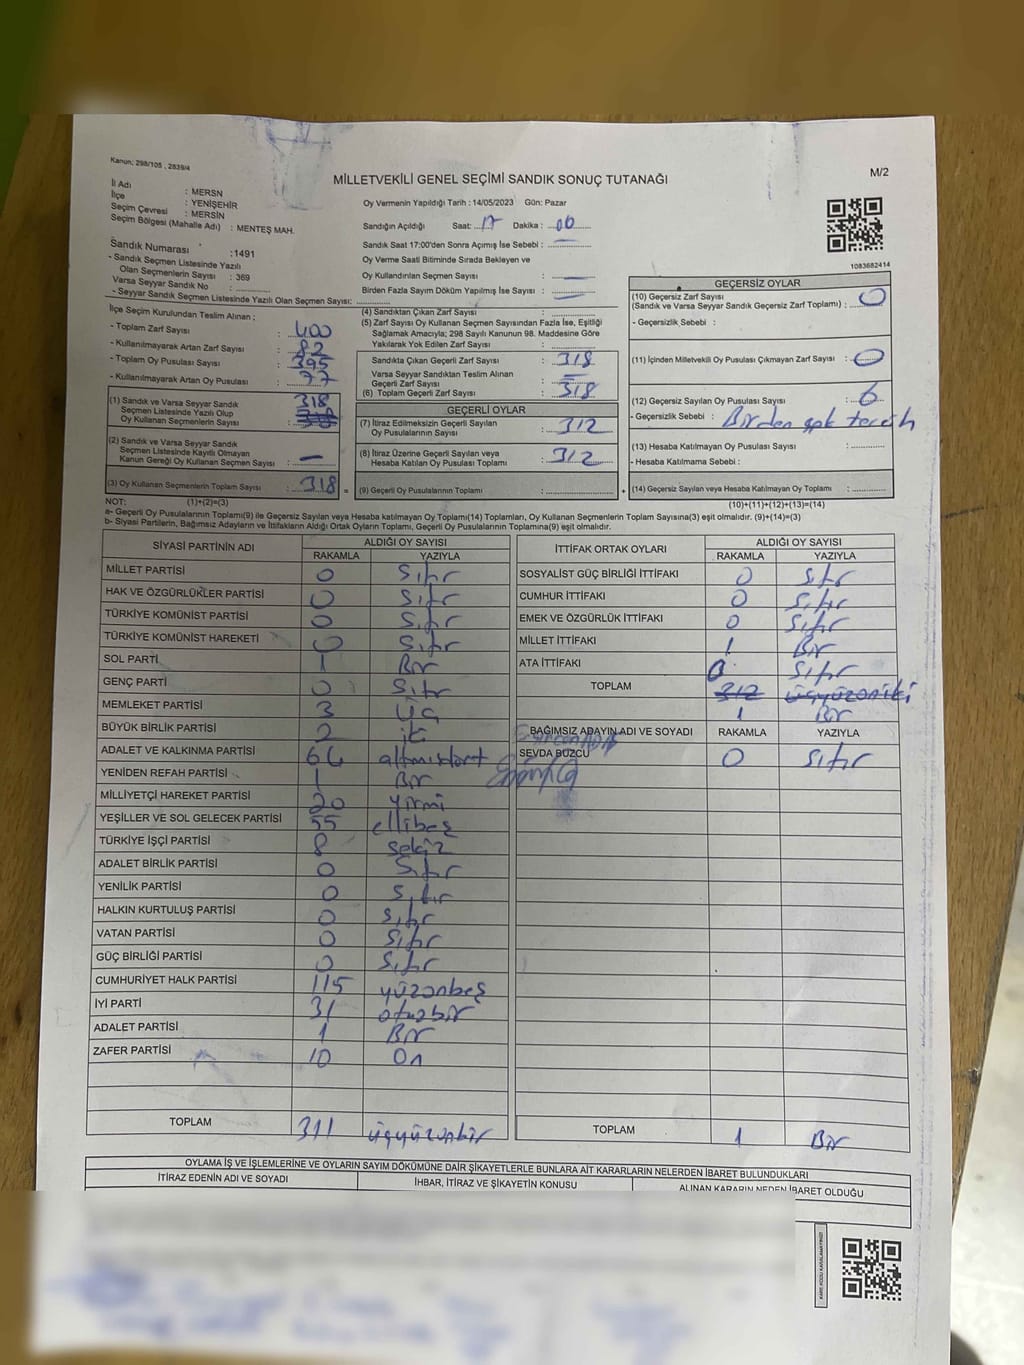 Kanun; 298/105 , 2839/4
MİLLETVEKİLİ GENEL SEÇİMİ SANDIK SONUÇ TUTANAĞI
M/2
İl Adı : MERSN
İlçe : YENİŞEHİR
Seçim Çevresi : MERSİN
Seçim Bölgesi (Mahalle Adı) : MENTEŞ MAH.
Sandık Numarası :1491
- Sandık Seçmen Listesinde Yazılı
Olan Seçmenlerin Sayısı : 369
Varsa Seyyar Sandık No :
- Seyyar Sandık Seçmen Listesinde Yazılı Olan Seçmen Sayısı:
Oy Vermenin Yapıldığı Tarih : 14/05/2023 Gün: Pazar
Sandığın Açıldığı Saat: 17 Dakika : 00
Sandık Saat 17:00'den Sonra Açımış İse Sebebi :
Oy Verme Saati Bitiminde Sırada Bekleyen ve
Oy Kullandırılan Seçmen Sayısı :
Birden Fazla Sayım Döküm Yapılmış İse Sayısı :
1083682414
İlçe Seçim Kurulundan Teslim Alınan ;
- Toplam Zarf Sayısı : 400
- Kullanılmayarak Artan Zarf Sayısı : 82
- Toplam Oy Pusulası Sayısı : 395
- Kullanılmayarak Artan Oy Pusulası : 77
(1) Sandık ve Varsa Seyyar Sandık
Seçmen Listesinde Yazılı Olup
Oy Kullanan Seçmenlerin Sayısı : 318
(2) Sandık ve Varsa Seyyar Sandık
Seçmen Listesinde Kayıtlı Olmayan
Kanun Gereği Oy Kullanan Seçmen Sayısı : –
(3) Oy Kullanan Seçmenlerin Toplam Sayısı : 318 =
(4) Sandıktan Çıkan Zarf Sayısı :
(5) Zarf Sayısı Oy Kullanan Seçmen Sayısından Fazla İse, Eşitliği
Sağlamak Amacıyla; 298 Sayılı Kanunun 98. Maddesine Göre
Yakılarak Yok Edilen Zarf Sayısı :
Sandıkta Çıkan Geçerli Zarf Sayısı : 318
Varsa Seyyar Sandıktan Teslim Alınan
Geçerli Zarf Sayısı : –
(6) Toplam Geçerli Zarf Sayısı : 318
GEÇERLİ OYLAR
(7) İtiraz Edilmeksizin Geçerli Sayılan
Oy Pusulalarının Sayısı : 312
(8) İtiraz Üzerine Geçerli Sayılan veya
Hesaba Katılan Oy Pusulası Toplamı : 312
(9) Geçerli Oy Pusulalarının Toplamı : +
GEÇERSİZ OYLAR
(10) Geçersiz Zarf Sayısı
(Sandık ve Varsa Seyyar Sandık Geçersiz Zarf Toplamı) : 0
- Geçersizlik Sebebi :
(11) İçinden Milletvekili Oy Pusulası Çıkmayan Zarf Sayısı : 0
(12) Geçersiz Sayılan Oy Pusulası Sayısı : 6
- Geçersizlik Sebebi : Birden çok tercih
(13) Hesaba Katılmayan Oy Pusulası Sayısı :
- Hesaba Katılmama Sebebi :
(14) Geçersiz Sayılan veya Hesaba Katılmayan Oy Toplamı :
NOT: (1)+(2)=(3) (10)+(11)+(12)+(13)=(14)
a- Geçerli Oy Pusulalarının Toplamı(9) ile Geçersiz Sayılan veya Hesaba Katılmayan Oy Toplamı(14) Toplamları, Oy Kullanan Seçmenlerin Toplam Sayısına(3) eşit olmalıdır. (9)+(14)=(3)
b- Siyasi Partilerin, Bağımsız Adayların ve İttifakların Aldığı Ortak Oyların Toplamı, Geçerli Oy Pusulalarının Toplamına(9) eşit olmalıdır.
SİYASİ PARTİNİN ADI ALDIĞI OY SAYISI
RAKAMLA YAZIYLA
MİLLET PARTİSİ 0 Sıfır
HAK VE ÖZGÜRLÜKLER PARTİSİ 0 Sıfır
TÜRKİYE KOMÜNİST PARTİSİ 0 Sıfır
TÜRKİYE KOMÜNİST HAREKETİ 0 Sıfır
SOL PARTİ 1 Bir
GENÇ PARTİ 0 Sıfır
MEMLEKET PARTİSİ 3 Üç
BÜYÜK BİRLİK PARTİSİ 2 iki
ADALET VE KALKINMA PARTİSİ 64 altmışdört
YENİDEN REFAH PARTİSİ 1 Bir
MİLLİYETÇİ HAREKET PARTİSİ 20 yirmi
YEŞİLLER VE SOL GELECEK PARTİSİ 55 ellibeş
TÜRKİYE İŞÇİ PARTİSİ 8 sekiz
ADALET BİRLİK PARTİSİ 0 Sıfır
YENİLİK PARTİSİ 0 Sıfır
HALKIN KURTULUŞ PARTİSİ 0 Sıfır
VATAN PARTİSİ 0 Sıfır
GÜÇ BİRLİĞİ PARTİSİ 0 Sıfır
CUMHURİYET HALK PARTİSİ 115 yüzonbeş
İYİ PARTİ 31 otuzbir
ADALET PARTİSİ 1 Bir
ZAFER PARTİSİ 10 On
TOPLAM 311 üçyüzonbir
İTTİFAK ORTAK OYLARI ALDIĞI OY SAYISI
RAKAMLA YAZIYLA
SOSYALİST GÜÇ BİRLİĞİ İTTİFAKI 0 Sıfır
CUMHUR İTTİFAKI 0 Sıfır
EMEK VE ÖZGÜRLÜK İTTİFAKI 0 Sıfır
MİLLET İTTİFAKI 1 Bir
ATA İTTİFAKI 0 Sıfır
TOPLAM 312 üçyüzoniki
1 Bir
BAĞIMSIZ ADAYIN ADI VE SOYADI RAKAMLA YAZIYLA
SEVDA BUZCU 0 Sıfır
TOPLAM 1 Bir
OYLAMA İŞ VE İŞLEMLERİNE VE OYLARIN SAYIM DÖKÜMÜNE DAİR ŞİKAYETLERLE BUNLARA AİT KARARLARIN NELERDEN İBARET BULUNDUKLARI
İTİRAZ EDENİN ADI VE SOYADI
İHBAR, İTİRAZ VE ŞİKAYETİN KONUSU
ALINAN KARARIN NEDEN İBARET OLDUĞU